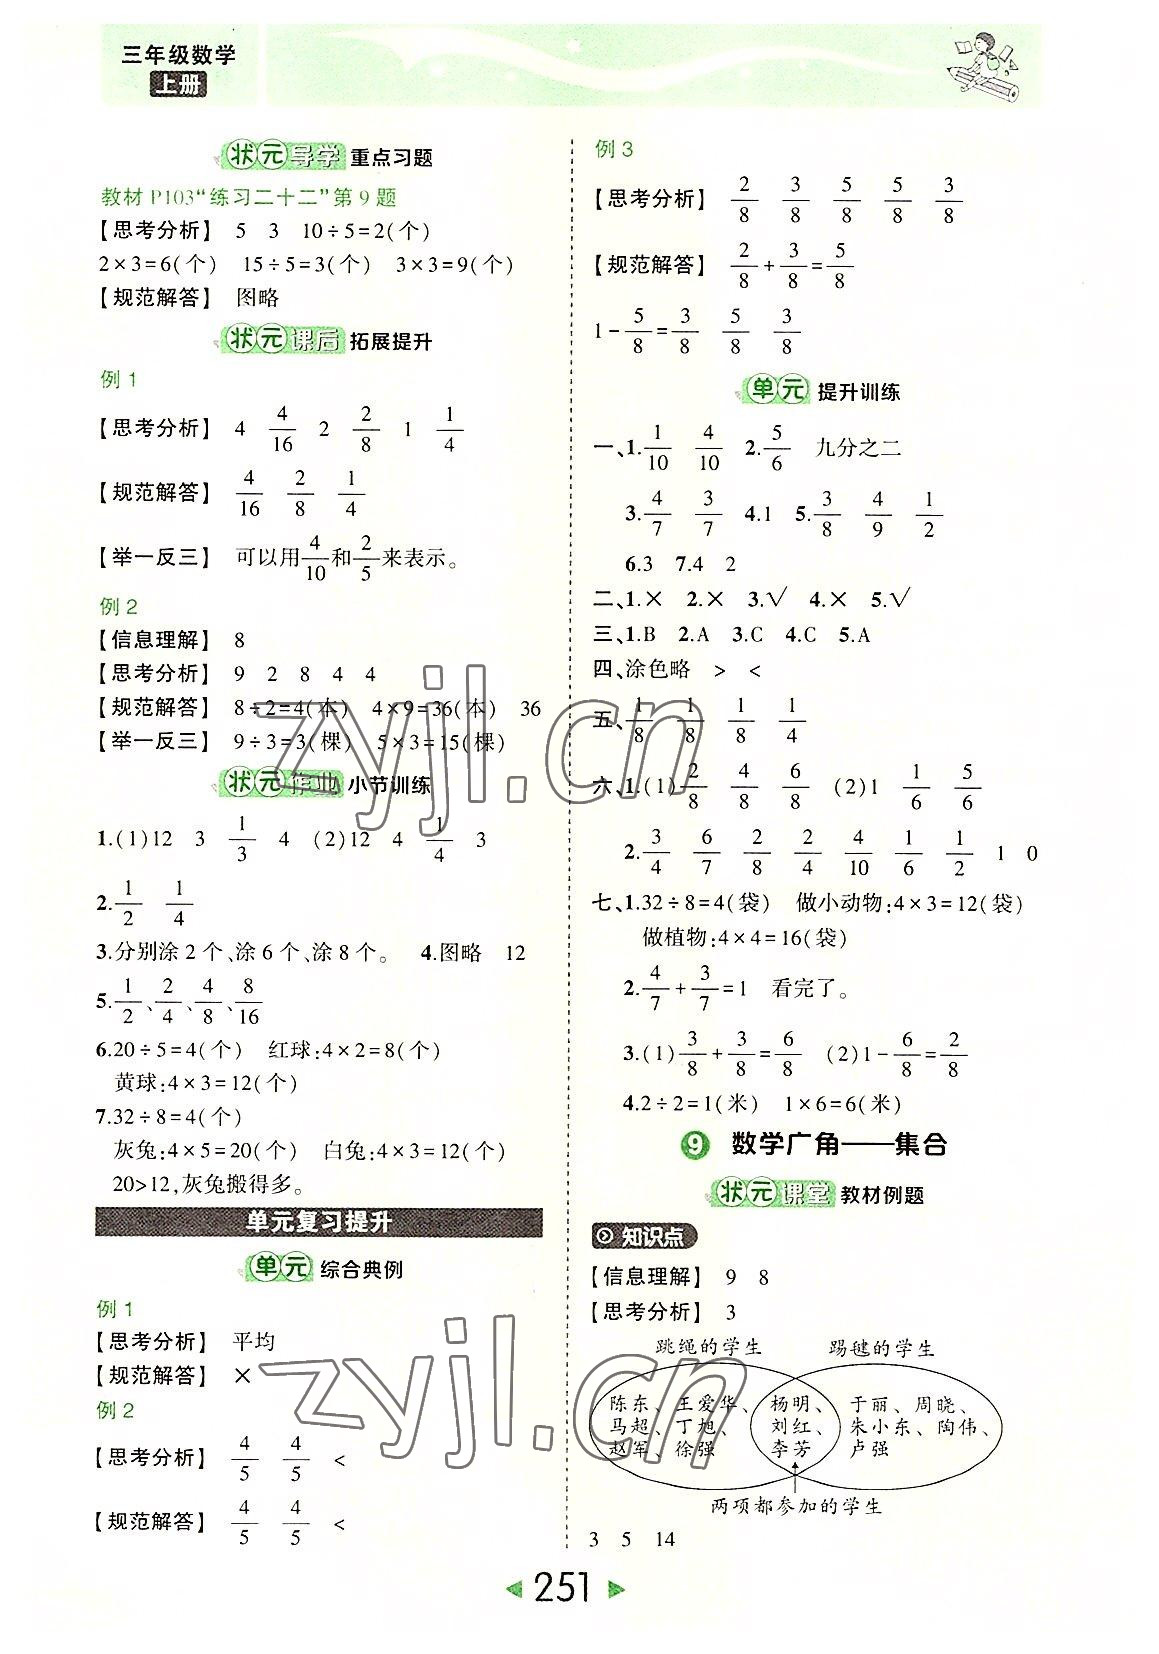 三年级数学
上册
状元导学 重点习题
教材 P103“练习二十二”第 9 题
【思考分析】 5 3 10÷5=2(个)
2×3=6(个) 15÷5=3(个) 3×3=9(个)
【规范解答】 图略
状元课后 拓展提升
例 1
【思考分析】 4 4/16 2 2/8 1 1/4
【规范解答】 4/16 2/8 1/4
【举一反三】 可以用4/10和2/5来表示。
例 2
【信息理解】 8
【思考分析】 9 2 8 4 4
【规范解答】 8÷2=4(本) 4×9=36(本) 36
【举一反三】 9÷3=3(棵) 5×3=15(棵)
状元作业 小节训练
1.(1)12 3 1/3 4 (2)12 4 1/4 3
2.1/2 1/4
3.分别涂 2 个、涂 6 个、涂 8 个。 4.图略 12
5.1/2、2/4、4/8、8/16
6.20÷5=4(个) 红球:4×2=8(个)
黄球:4×3=12(个)
7.32÷8=4(个)
灰兔:4×5=20(个) 白兔:4×3=12(个)
20>12,灰兔搬得多。
单元复习提升
单元 综合典例
例 1
【思考分析】 平均
【规范解答】 ×
例 2
【思考分析】 4/5 4/5 <
【规范解答】 4/5 4/5 <
例 3
【思考分析】 2/8 3/8 5/8 5/8 3/8
【规范解答】 2/8+3/8=5/8
1-5/8=3/8 5/8 3/8
单元 提升训练
一、1.1/10 4/10 2.5/6 九分之二
3.4/7 3/7 4.1 5.3/8 4/9 1/2
6.3 7.4 2
二、1.× 2.× 3.√ 4.× 5.√
三、1.B 2.A 3.C 4.C 5.A
四、涂色略 > <
五、1/8 1/8 1/8 1/4
六、1.(1)2/8 4/8 6/8 (2)1 1/6 5/6
2.3/4 6/7 2/8 2/4 4/10 1/6 1/2 1 0
七、1.32÷8=4(袋) 做小动物:4×3=12(袋)
做植物:4×4=16(袋)
2.4/7+3/7=1 看完了。
3.(1)3/8+3/8=6/8 (2)1-6/8=2/8
4.2÷2=1(米) 1×6=6(米)
9 数学广角——集合
状元课堂 教材例题
知识点
【信息理解】 9 8
【思考分析】 3
跳绳的学生 踢毽的学生
陈东、王爱华、 杨明、 于丽、周晓、
马超、丁旭、 刘红、 朱小东、陶伟、
赵军、徐强 李芳 卢强
两项都参加的学生
3 5 14
251
zyjl.cn
zyjl.cn